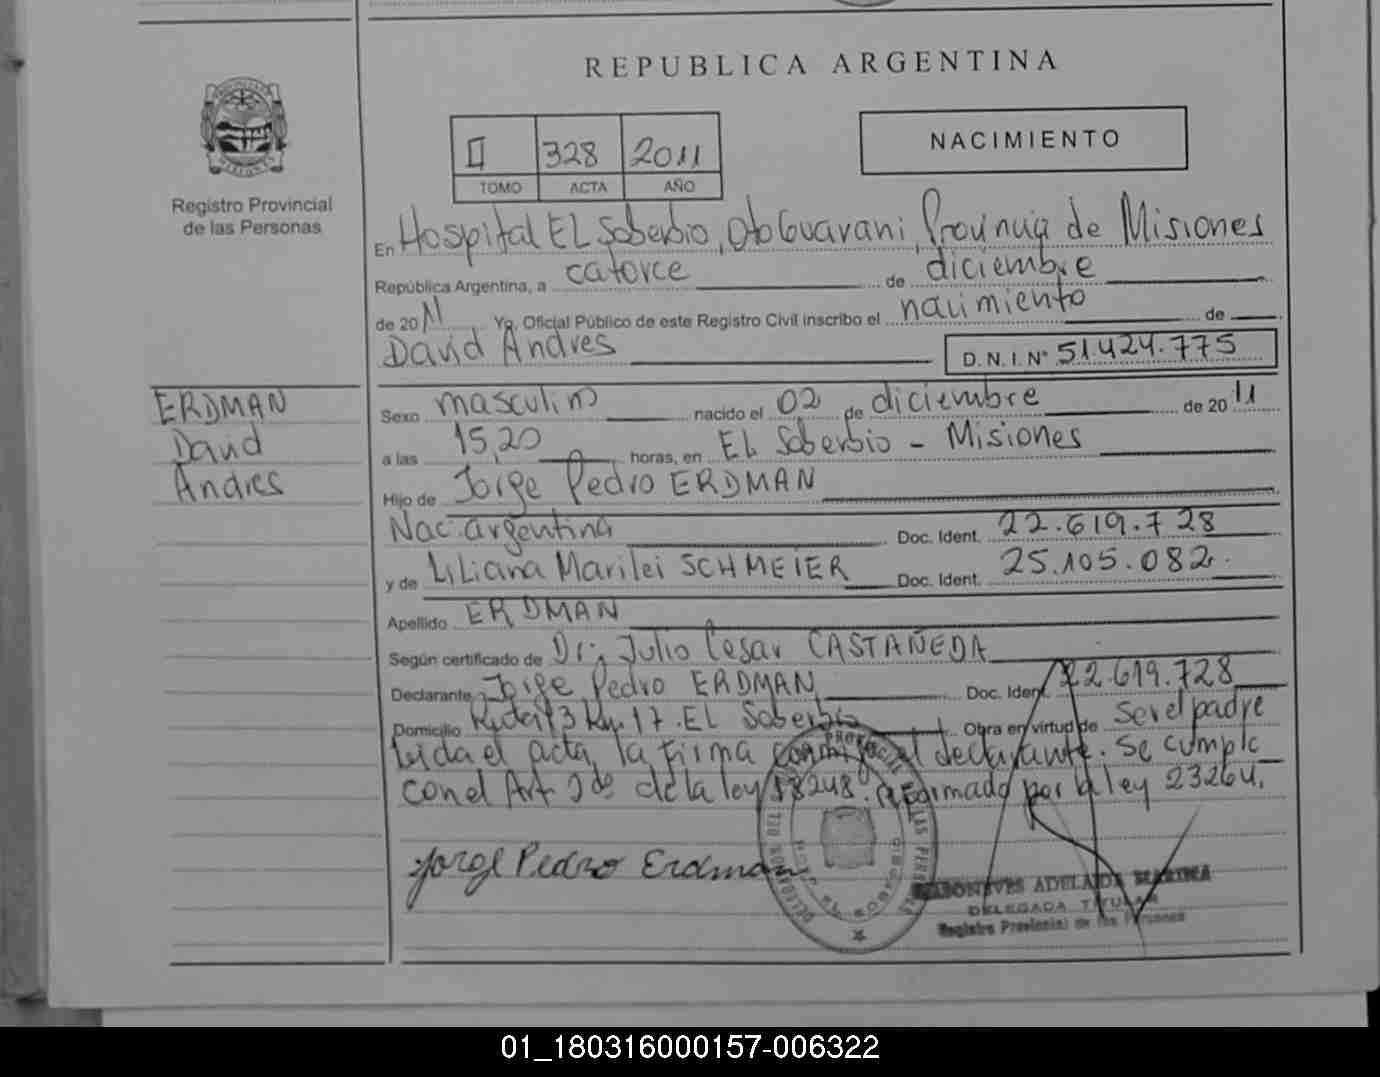 REPUBLICA ARGENTINA
II 328 2011
TOMO ACTA AÑO
NACIMIENTO
Registro Provincial
de las Personas
En Hospital EL Soberbio, Dto Guarani, Provincia de Misiones
República Argentina, a catorce de diciembre
de 2011 Yo, Oficial Público de este Registro Civil inscribo el nacimiento de
David Andres D. N. I. Nº 51.424.775
ERDMAN
David
Andres
Sexo masculino nacido el 02 de diciembre de 2011
a las 15,20 horas, en EL Soberbio - Misiones
Hijo de Jorge Pedro ERDMAN
Nac. argentina Doc. Ident. 22.619.728
y de Liliana Marilei SCHMEIER Doc. Ident. 25.105.082.
Apellido ERDMAN
Según certificado de Dr; Julio Cesar CASTAÑEDA
Declarante Jorge Pedro ERDMAN Doc. Ident. 22.619.728
Domicilio Ruta 13 Km. 17. EL Soberbio Obra en virtud de ser el padre
leida el acta, la firma conmigo el declarante. Se cumple
con el Art 2do de la ley 18248. reformado por la ley 23264.
Jorge Pedro Erdman
ADELAIDA MARINA
DELEGADA TITULAR
Registro Provincial de las Personas
01_180316000157-006322